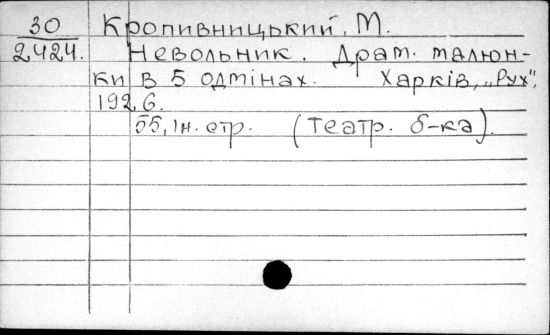 30 Кропивницький, М.
2424. Невольник. Драт. малюн-
ки в 5 одмінах. Харків, „Рух",
1926.
55, ін. стр. (Театр. б-ка).